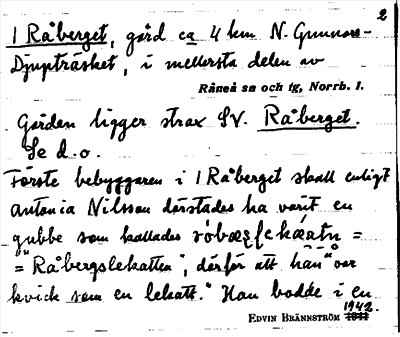 2
1 Råberget, gård ca 4 km N. Gunnars-
Djupträsket, i mellersta delen av
Råneå sn och tg, Norrb. l.
Gården ligger strax SV. Råberget.
Se d.o.
Förste bebyggaren i 1 Råberget skall enligt
Antonia Nilsson därstädes ha varit en
gubbe som kallades
= "Råbergslekatten", därför att han "var
kvick som en lekatt." Han bodde i en
EDVIN BRÄNNSTRÖM 1942.